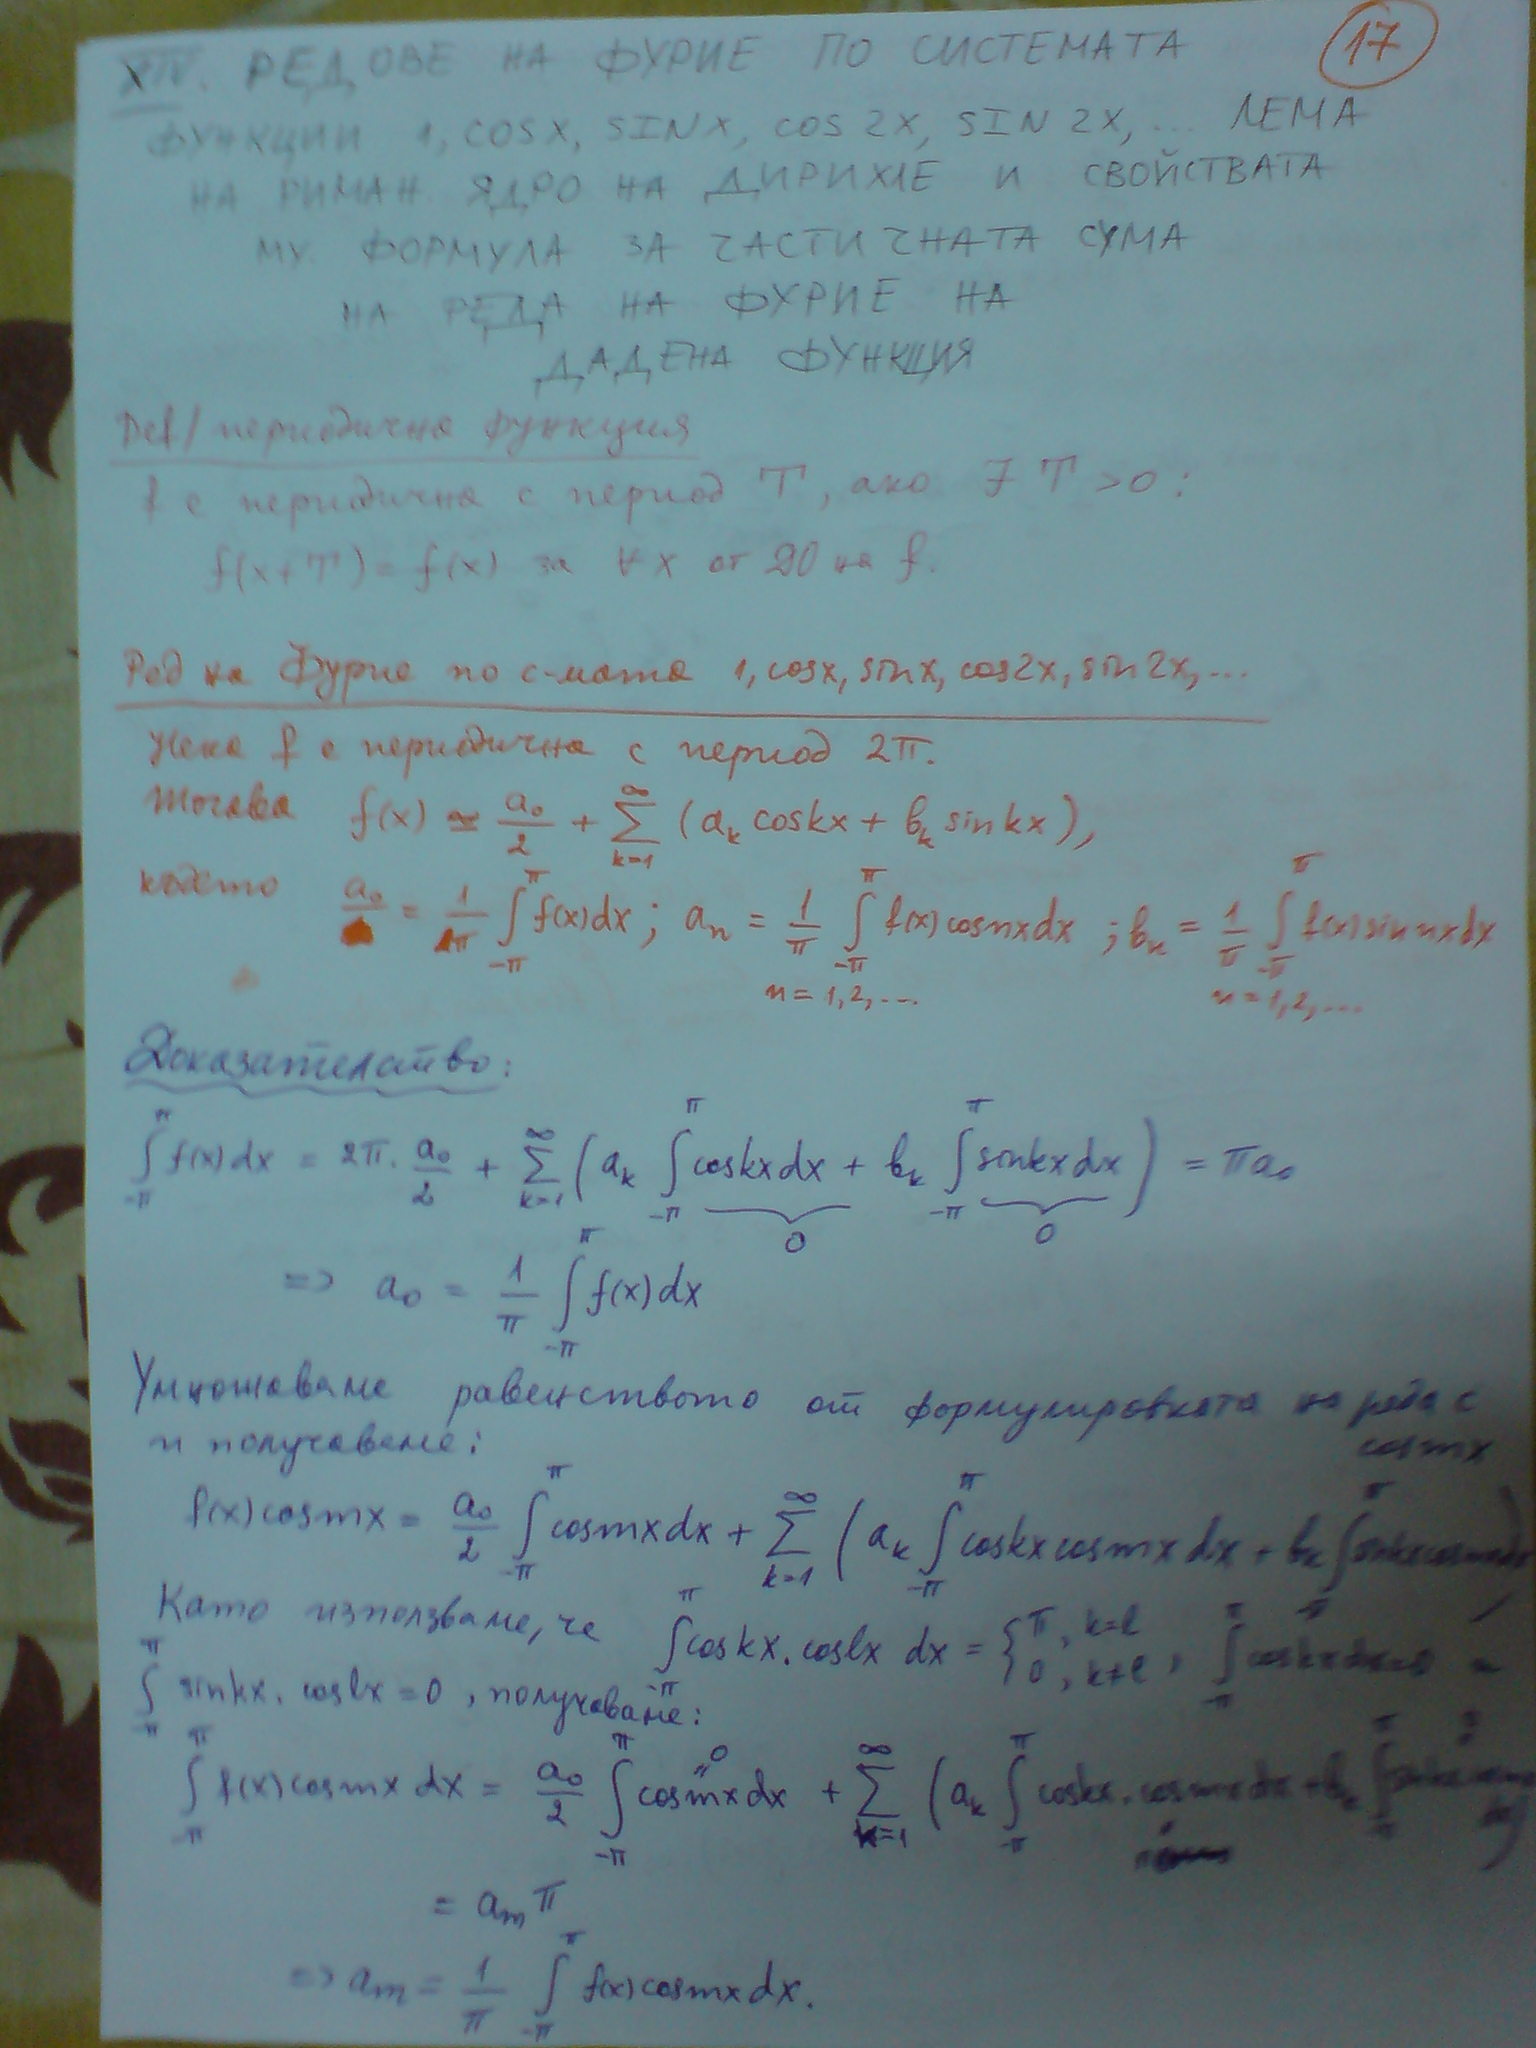 XIV. РЕДОВЕ НА ФУРИЕ ПО СИСТЕМАТА
17
ФУНКЦИИ 1, COSX, SINX, COS 2X, SIN 2X, ... ЛЕМА
НА РИМАН. ЯДРО НА ДИРИХЛЕ И СВОЙСТВАТА
МУ. ФОРМУЛА ЗА ЧАСТИЧНАТА СУМА
НА РЕДА НА ФУРИЕ НА
ДАДЕНА ФУНКЦИЯ
Def/ периодична функция
f е периодична с период T, ако ∃ T>0:
f(x+T) = f(x) за ∀ x от ДО на f.
Ред на Фурие по с-мата 1, cosx, sinx, cos2x, sin2x, ...
Нека f е периодична с период 2π.
Тогава f(x) ≃ a₀/2 + ∑_{k=1}^{∞} (a_k coskx + b_k sinkx),
където a₀ = 1/π ∫_{-π}^{π} f(x)dx; a_n = 1/π ∫_{-π}^{π} f(x)cosnxdx; b_n = 1/π ∫_{-π}^{π} f(x)sinnxdx
n=1,2,... n=1,2,...
Доказателство:
∫_{-π}^{π} f(x)dx = 2π. a₀/2 + ∑_{k=1}^{∞} (a_k ∫_{-π}^{π} coskxdx + b_k ∫_{-π}^{π} sinkxdx) = πa₀
0 0
=> a₀ = 1/π ∫_{-π}^{π} f(x)dx
Умножаваме равенството от формулировката на реда с
cosmx
и получаваме:
f(x)cosmx = a₀/2 ∫_{-π}^{π} cosmxdx + ∑_{k=1}^{∞} (a_k ∫_{-π}^{π} coskxcosmxdx + b_k ∫_{-π}^{π} sinkxcosmxdx),
Като използваме, че ∫_{-π}^{π} coskx.coslx dx = {π, k=l; 0, k≠l, ∫_{-π}^{π} coskxdx=0 и
∫_{-π}^{π} sinkx.coslx=0, получаваме:
∫_{-π}^{π} f(x)cosmxdx = a₀/2 ∫_{-π}^{π} cosmxdx + ∑_{k=1}^{∞} (a_k ∫_{-π}^{π} coskx.cosmxdx + b_k ∫_{-π}^{π} sinkx.cosmx dx)
= a_m π
=> a_m = 1/π ∫_{-π}^{π} f(x)cosmxdx.